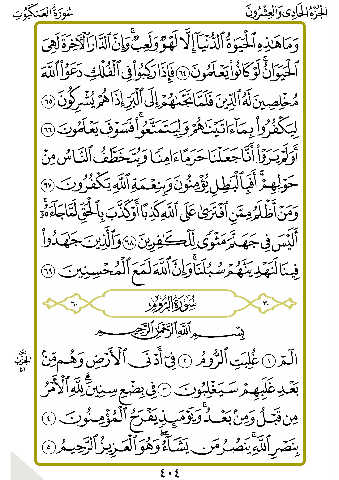 الجزء الحادي والعشرون
سورة العنكبوت
وَمَا هَٰذِهِ الْحَيَوٰةُ الدُّنْيَا إِلَّا لَهْوٌ وَلَعِبٌ ۚ وَإِنَّ الدَّارَ الْآخِرَةَ لَهِيَ
الْحَيَوَانُ ۚ لَوْ كَانُوا يَعْلَمُونَ ٦٤ فَإِذَا رَكِبُوا فِي الْفُلْكِ دَعَوُا اللَّهَ
مُخْلِصِينَ لَهُ الدِّينَ فَلَمَّا نَجَّىٰهُمْ إِلَى الْبَرِّ إِذَا هُمْ يُشْرِكُونَ ٦٥
لِيَكْفُرُوا بِمَا ءَاتَيْنَٰهُمْ وَلِيَتَمَتَّعُوا ۖ فَسَوْفَ يَعْلَمُونَ ٦٦
أَوَلَمْ يَرَوْا أَنَّا جَعَلْنَا حَرَمًا ءَامِنًا وَيُتَخَطَّفُ النَّاسُ مِنْ
حَوْلِهِمْ ۚ أَفَبِالْبَٰطِلِ يُؤْمِنُونَ وَبِنِعْمَةِ اللَّهِ يَكْفُرُونَ ٦٧
وَمَنْ أَظْلَمُ مِمَّنِ افْتَرَىٰ عَلَى اللَّهِ كَذِبًا أَوْ كَذَّبَ بِالْحَقِّ لَمَّا جَاءَهُ ۚ
أَلَيْسَ فِي جَهَنَّمَ مَثْوًى لِلْكَٰفِرِينَ ٦٨ وَالَّذِينَ جَٰهَدُوا
فِينَا لَنَهْدِيَنَّهُمْ سُبُلَنَا ۚ وَإِنَّ اللَّهَ لَمَعَ الْمُحْسِنِينَ ٦٩
٣٠ سورة الروم ٦٠
بِسْمِ اللَّهِ الرَّحْمَٰنِ الرَّحِيمِ
الٓمٓ ١ غُلِبَتِ الرُّومُ ٢ فِي أَدْنَى الْأَرْضِ وَهُمْ مِنْ
بَعْدِ غَلَبِهِمْ سَيَغْلِبُونَ ٣ فِي بِضْعِ سِنِينَ ۗ لِلَّهِ الْأَمْرُ
مِنْ قَبْلُ وَمِنْ بَعْدُ ۚ وَيَوْمَئِذٍ يَفْرَحُ الْمُؤْمِنُونَ ٤
بِنَصْرِ اللَّهِ ۚ يَنْصُرُ مَنْ يَشَاءُ ۖ وَهُوَ الْعَزِيزُ الرَّحِيمُ ٥
٤٠٤